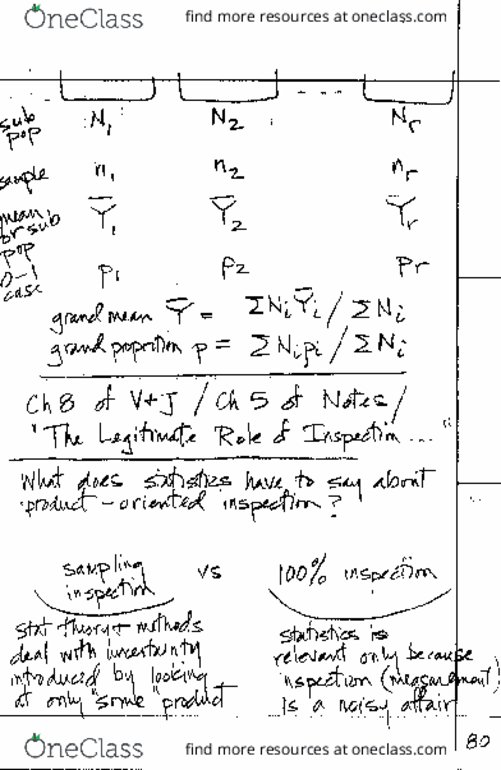 OneClass find more resources at oneclass.com
sub pop N₁ N₂ Nᵣ
sample n₁ n₂ nᵣ
mean for sub pop Ȳ₁ Ȳ₂ Ȳᵣ
0-1 case p₁ p₂ pᵣ
grand mean Ȳ = ΣNᵢȲᵢ / ΣNᵢ
grand proportion p = ΣNᵢpᵢ / ΣNᵢ
Ch 8 of V+J / Ch 5 of Notes /
"The Legitimate Role of Inspection ... "
What does statistics have to say about
product-oriented inspection?
sampling inspection vs 100% inspection
stat theory + methods
deal with uncertainty
introduced by looking
at only "some" product
statistics is
relevant only because
inspection (measurement)
is a noisy affair
80
OneClass find more resources at oneclass.com